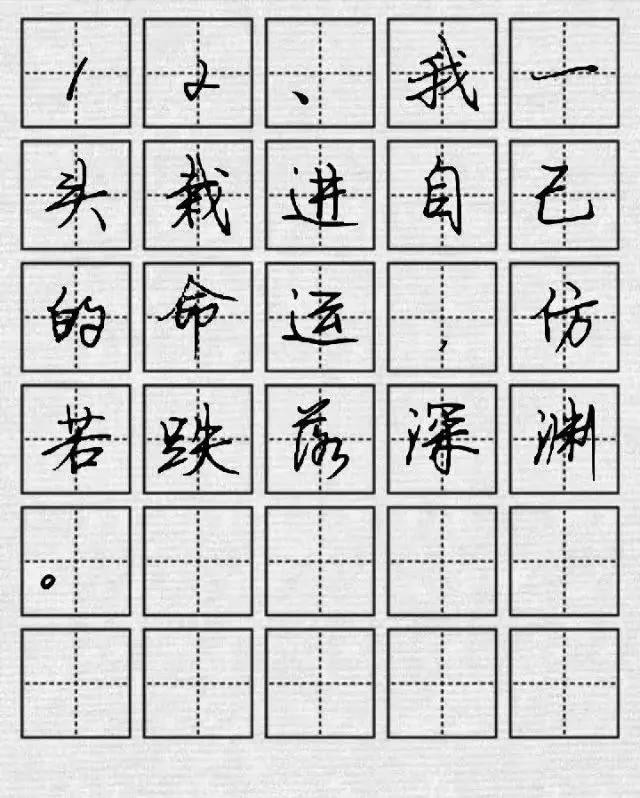 12、我一
头栽进自己
的命运，仿
若跌落深渊
。